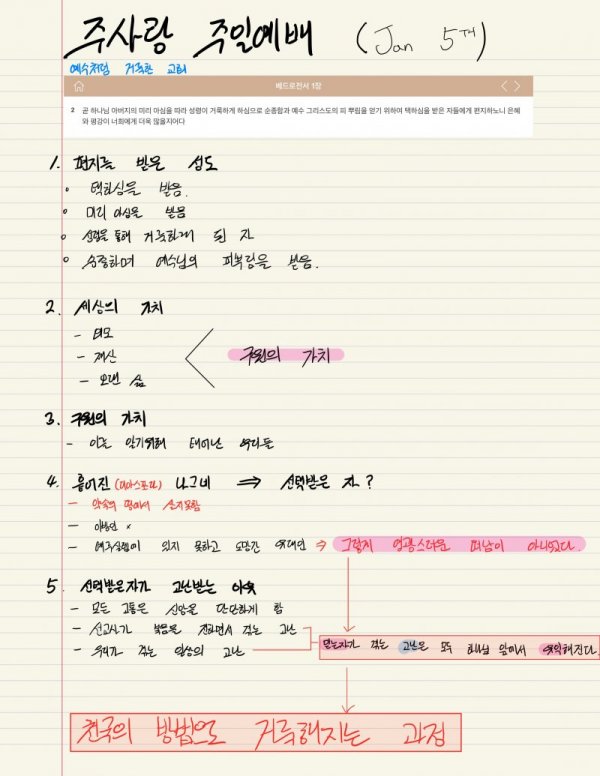 주사랑 주일예배 (Jan 5TH)
예수처럼 거룩한 교회
베드로전서 1장
2 곧 하나님 아버지의 미리 아심을 따라 성령이 거룩하게 하심으로 순종함과 예수 그리스도의 피 뿌림을 얻기 위하여 택하심을 받은 자들에게 편지하노니 은혜
와 평강이 너희에게 더욱 많을지어다
1. 편지를 받은 성도
◦ 택하심을 받음.
◦ 미리 아심을 받음
◦ 성령을 통해 거룩하게 된 자
◦ 순종하며 예수님의 피뿌림을 받음.
2. 세상의 가치
- 외모
- 재산
- 오랜 삶
구원의 가치
3. 구원의 가치
- 이를 알기위해 태어난 우리들
4. 흩어진 (디아스포라) 나그네 ⇒ 선택받은 자?
- 약속의 땅에서 살지못함
- 이방인 x
- 예루살렘에 있지 못하고 도망간 유대인 ⇒ 그렇게 영광스러운 떠남이 아니었다.
5. 선택받은자가 고난받는 이유
- 모든 고통은 신앙을 단단하게 함
- 선교사가 복음을 전하면서 겪는 고난
- 우리가 겪는 일상의 고난
믿는자가 겪는 고난은 모두 하나님 앞에서 유익해진다.
천국의 방법으로 거룩해지는 과정